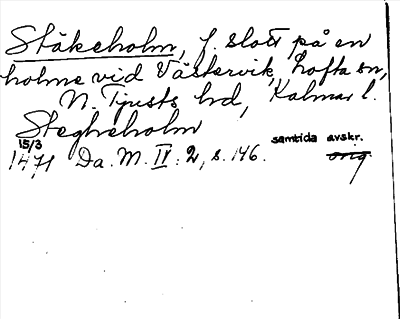 Stäkeholm, f. slott på en
holme vid Västervik, Lofta sn,
N. Tjusts hd, Kalmar l.
Stegheholm
15/3 samtida avskr.
1471 Da. M. IV: 2, s. 146. orig.